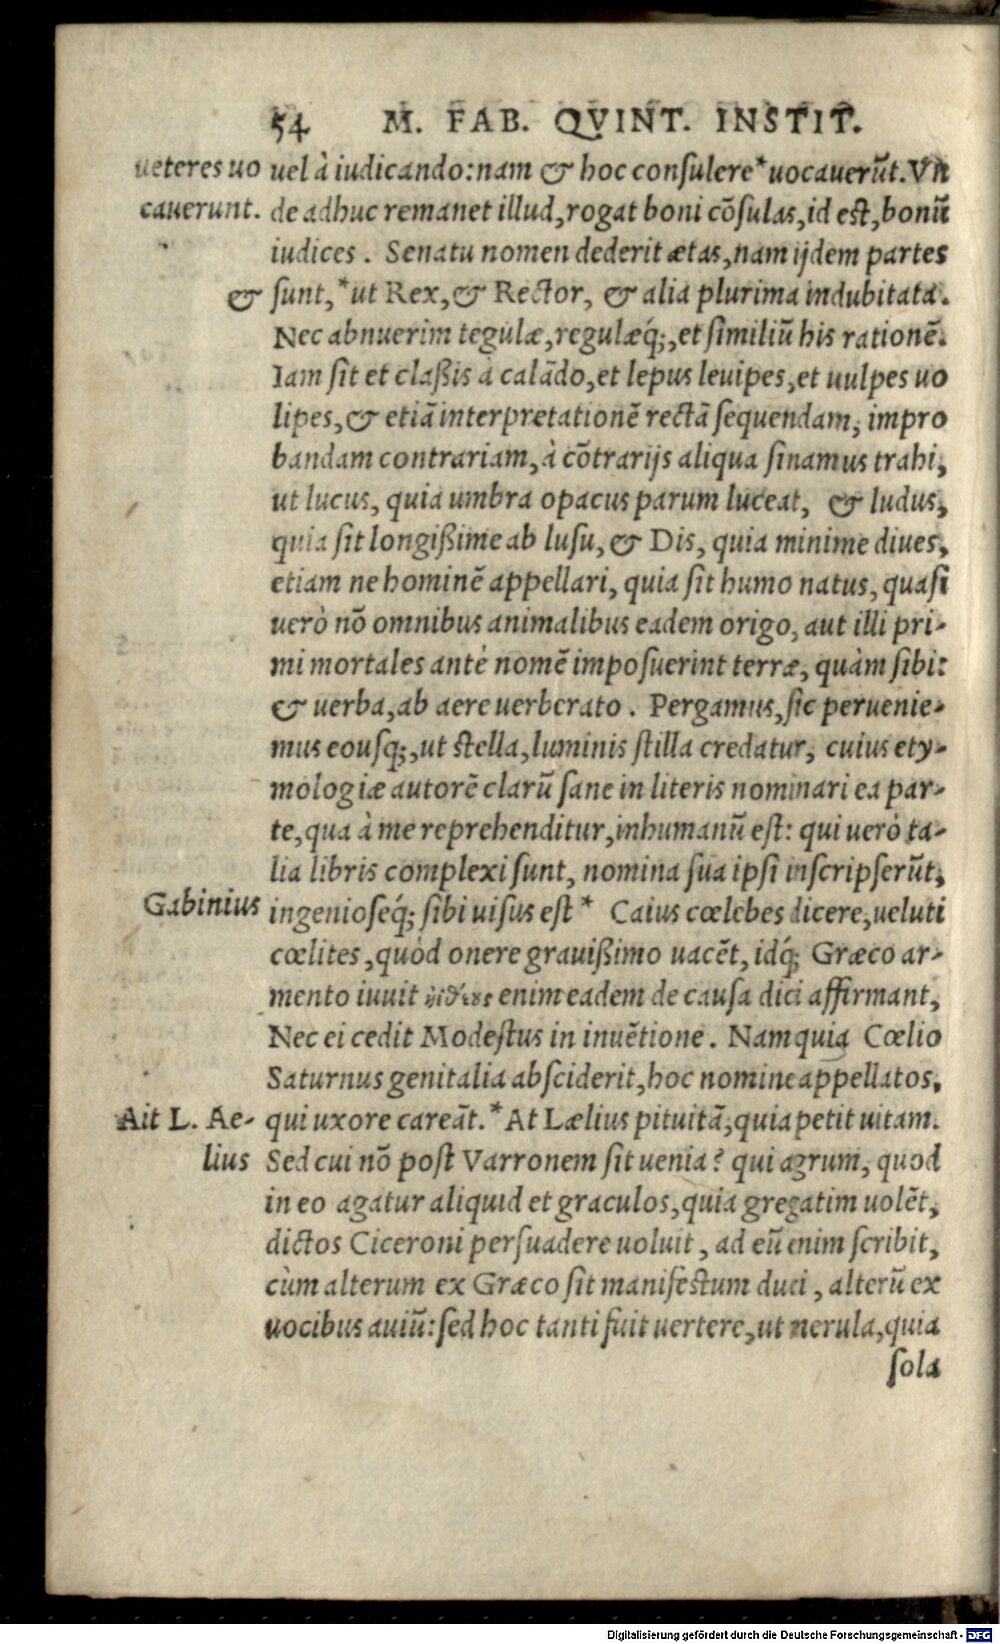 54 M. FAB. QVINT. INSTIT.
ueteres uo
cauerunt.
uel à iudicando: nam & hoc consulere* uocauerũt. Vn
de adhuc remanet illud, rogat boni cõsulas, id est, bonũ
iudices. Senatu nomen dederit ætas, nam ijdem partes
&
sunt,* ut Rex, & Rector, & alia plurima indubitata.
Nec abnuerim tegulæ, regulæq́;, et similiũ his rationẽ.
Iam sit et claßis à calãdo, et lepus leuipes, et uulpes uo
lipes, & etiã interpretationẽ rectã sequendam, impro
bandam contrariam, à cõtrarijs aliqua sinamus trahi,
ut lucus, quia umbra opacus parum luceat, & ludus,
quia sit longißime ab lusu, & Dis, quia minime diues,
etiam ne hominẽ appellari, quia sit humo natus, quasi
uerò nõ omnibus animalibus eadem origo, aut illi pri-
mi mortales antè nomẽ imposuerint terræ, quàm sibi:
& uerba, ab aere uerberato. Pergamus, sic peruenie-
mus eousq;, ut stella, luminis stilla credatur, cuius ety-
mologiæ autorẽ clarũ sane in literis nominari ea par-
te, qua à me reprehenditur, inhumanũ est: qui uerò ta-
lia libris complexi sunt, nomina sua ipsi inscripserũt,
Gabinius
ingenioseq́; sibi uisus est * Caius cœlebes dicere, ueluti
cœlites, quòd onere grauißimo uacẽt, idq́; Græco ar-
mento iuuit enim eadem de causa dici affirmant,
Nec ei cedit Modestus in inuẽtione. Nam quia Cœlio
Saturnus genitalia absciderit, hoc nomine appellatos,
Ait L. Ae-
lius
qui uxore careãt.* At Lælius pituitã, quia petit uitam.
Sed cui nõ post Varronem sit uenia? qui agrum, quod
in eo agatur aliquid et graculos, quia gregatim uolẽt,
dictos Ciceroni persuadere uoluit, ad eũ enim scribit,
cùm alterum ex Græco sit manifestum duci, alterũ ex
uocibus auiũ: sed hoc tanti fuit uertere, ut merula, quia
sola
Digitalisierung gefördert durch die Deutsche Forschungsgemeinschaft - DFG